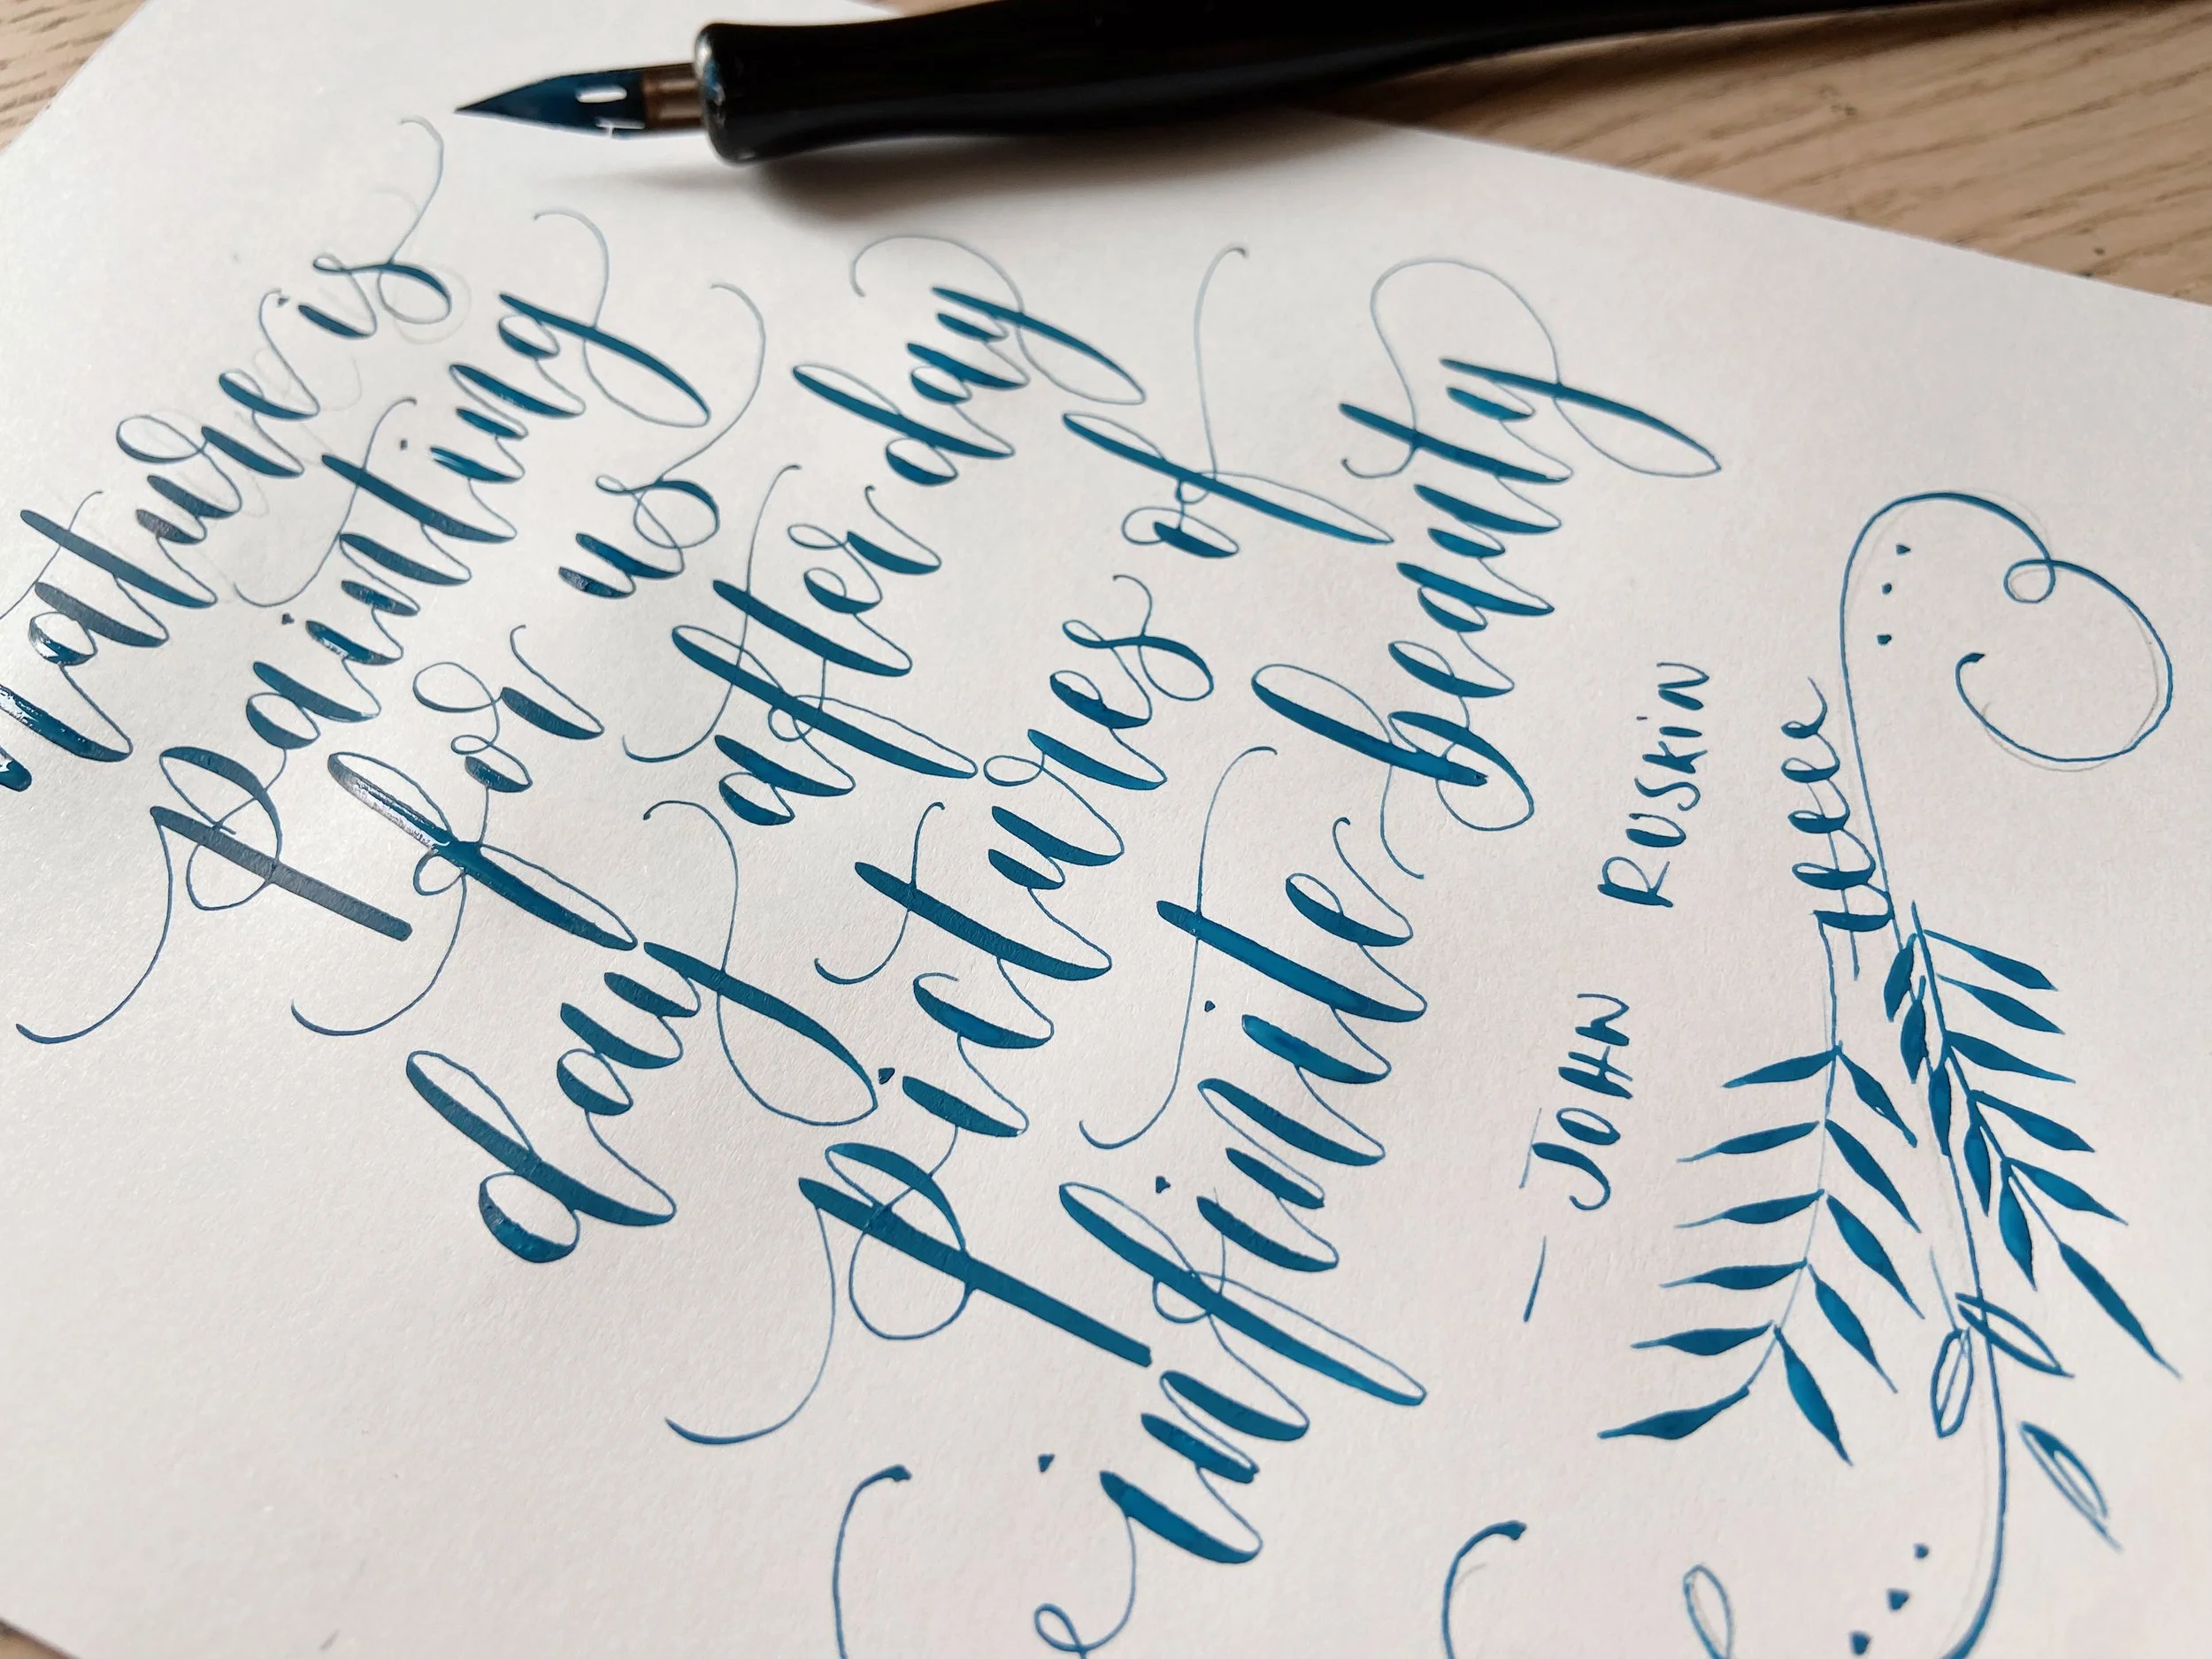 nature is
painting
for us
day after day
pictures of
infinite beauty
— JOHN RUSKIN